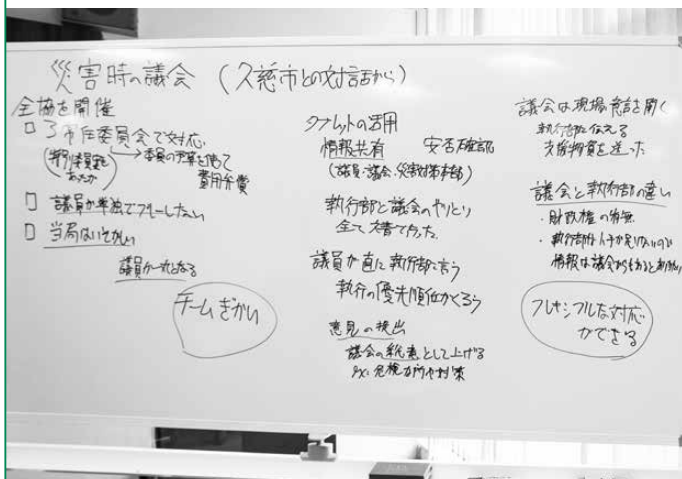 災害時の議会 (久慈市との対話から)
全協を開催
□ 3常任委員会で対応
(特別委員会もあったか) → 委員の予算を使って
費用弁償
□ 議員が単独でプレーしない
□ 当局はいそがしい
議員が一丸となる
チームぎかい
タブレットの活用
情報共有 安否確認
(議員・議会・災害対策本部)
執行部と議会のやりとり
全て文書で行った。
議員が直に執行部に言う
執行の優先順位がくるう
意見の提出
議会の総意として上げる
ex. 危険カ所や対策
議会は現場の声を聞く
執行部に伝える
支援物資を送った
議会と執行部の違い
・財政権の有無
・執行部は人手が足りないので
情報は議会からもあるとありがたい
フレキシブルな対応
ができる